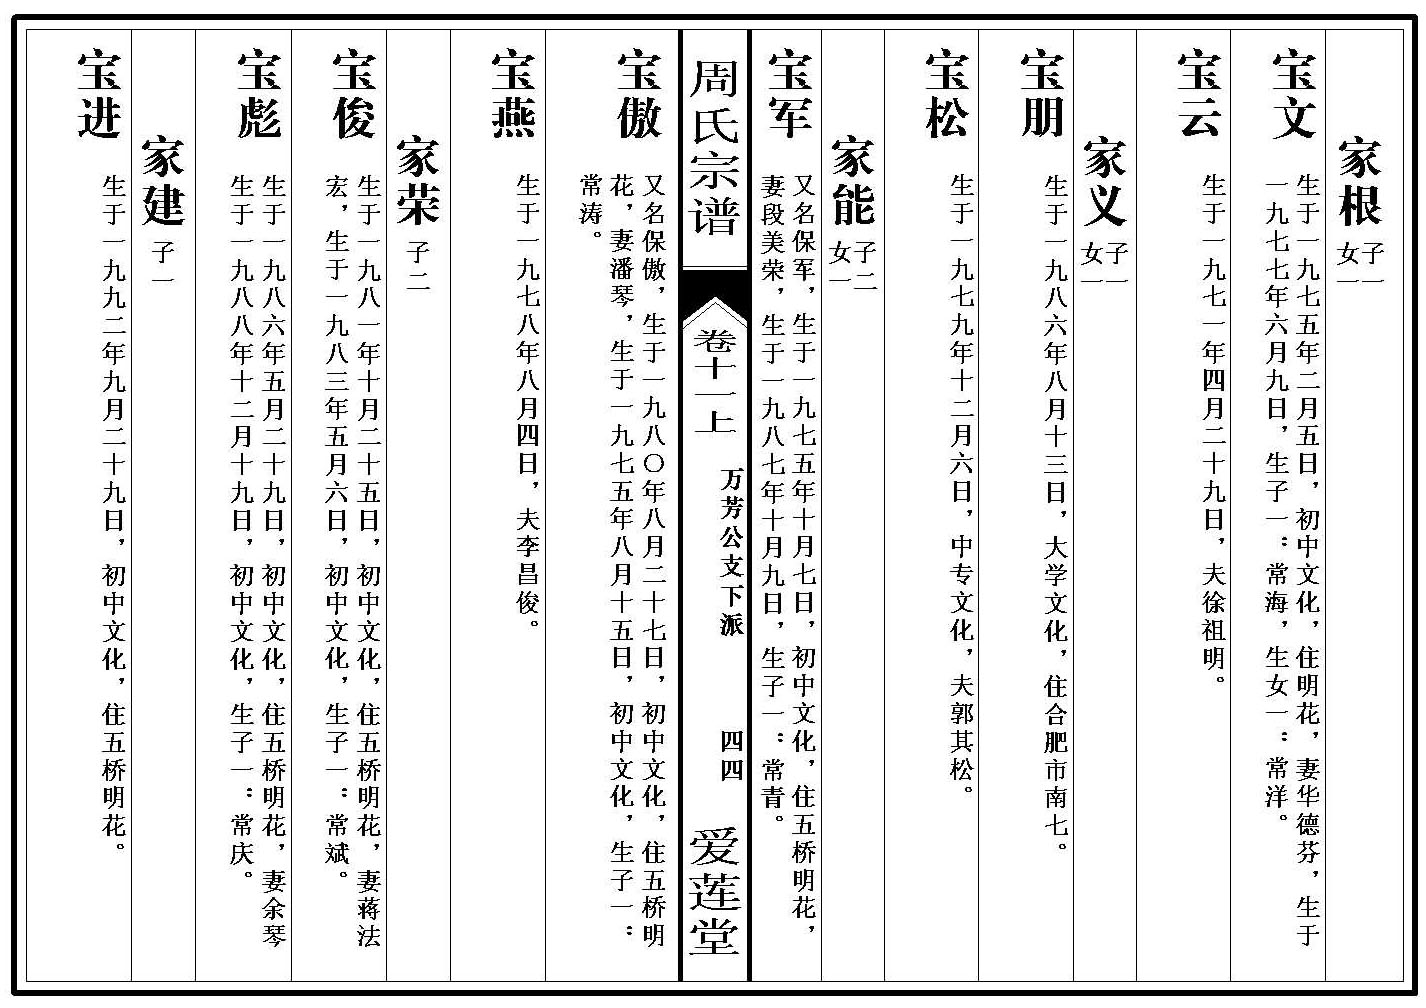 家根
子一
女一
宝文
生于一九七五年二月五日，初中文化，住明花，妻华德芬，生于
一九七七年六月九日，生子一：常海，生女一：常洋。
宝云
生于一九七一年四月二十九日，夫徐祖明。
家义
子一
女一
宝朋
生于一九八六年八月十三日，大学文化，住合肥市南七。
宝松
生于一九七九年十二月六日，中专文化，夫郭其松。
家能
子二
女一
宝军
又名保军，生于一九七五年十月七日，初中文化，住五桥明花，
妻段美荣，生于一九八七年十月九日，生子一：常青。
周氏宗谱
卷十一上
万芳公支下派
四四
爱莲堂
宝傲
又名保傲，生于一九八〇年八月二十七日，初中文化，住五桥明
花，妻潘琴，生于一九七五年八月十五日，初中文化，生子一：
常涛。
宝燕
生于一九七八年八月四日，夫李昌俊。
家荣
子二
宝俊
生于一九八一年十月二十五日，初中文化，住五桥明花，妻蒋法
宏，生于一九八三年五月六日，初中文化，生子一：常斌。
宝彪
生于一九八六年五月二十九日，初中文化，住五桥明花，妻余琴
生于一九八八年十二月十九日，初中文化，生子一：常庆。
家建
子一
宝进
生于一九九二年九月二十九日，初中文化，住五桥明花。